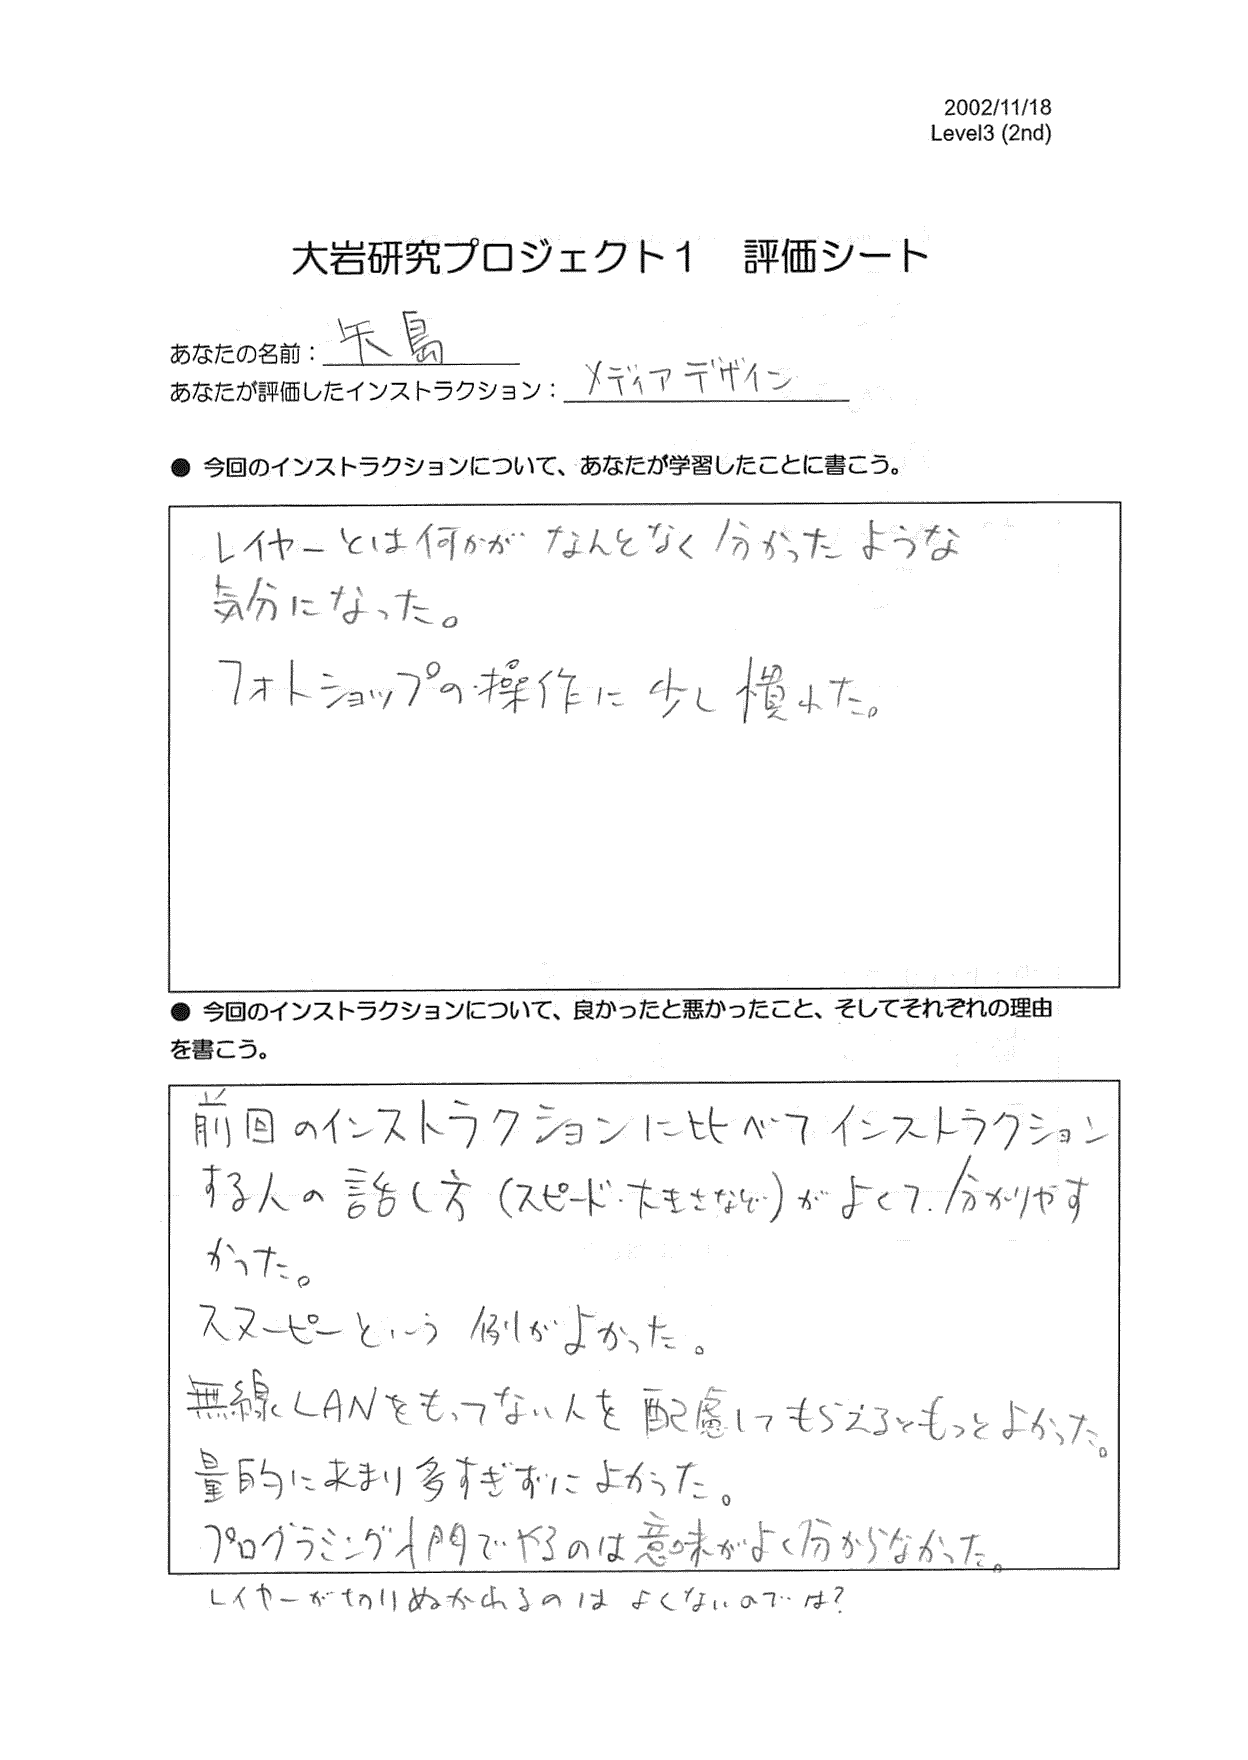 2002/11/18
Level3 (2nd)
大岩研究プロジェクト１　評価シート
あなたの名前：矢島
あなたが評価したインストラクション：メディアデザイン
● 今回のインストラクションについて、あなたが学習したことに書こう。
レイヤーとは何かが なんとなく分かったような
気分になった。
フォトショップの操作に少し慣れた。
● 今回のインストラクションについて、良かったと悪かったこと、そしてそれぞれの理由
を書こう。
前回のインストラクションに比べてインストラクション
する人の話し方（スピード・大きさなど）がよくて、分かりやす
かった。
スヌーピーという例がよかった。
無線LANをもってない人を配慮してもらえるともっとよかった。
量的にあまり多すぎずによかった。
プログラミング入門でやるのは意味がよく分からなかった。
レイヤーが切りぬかれるのはよくないのでは?